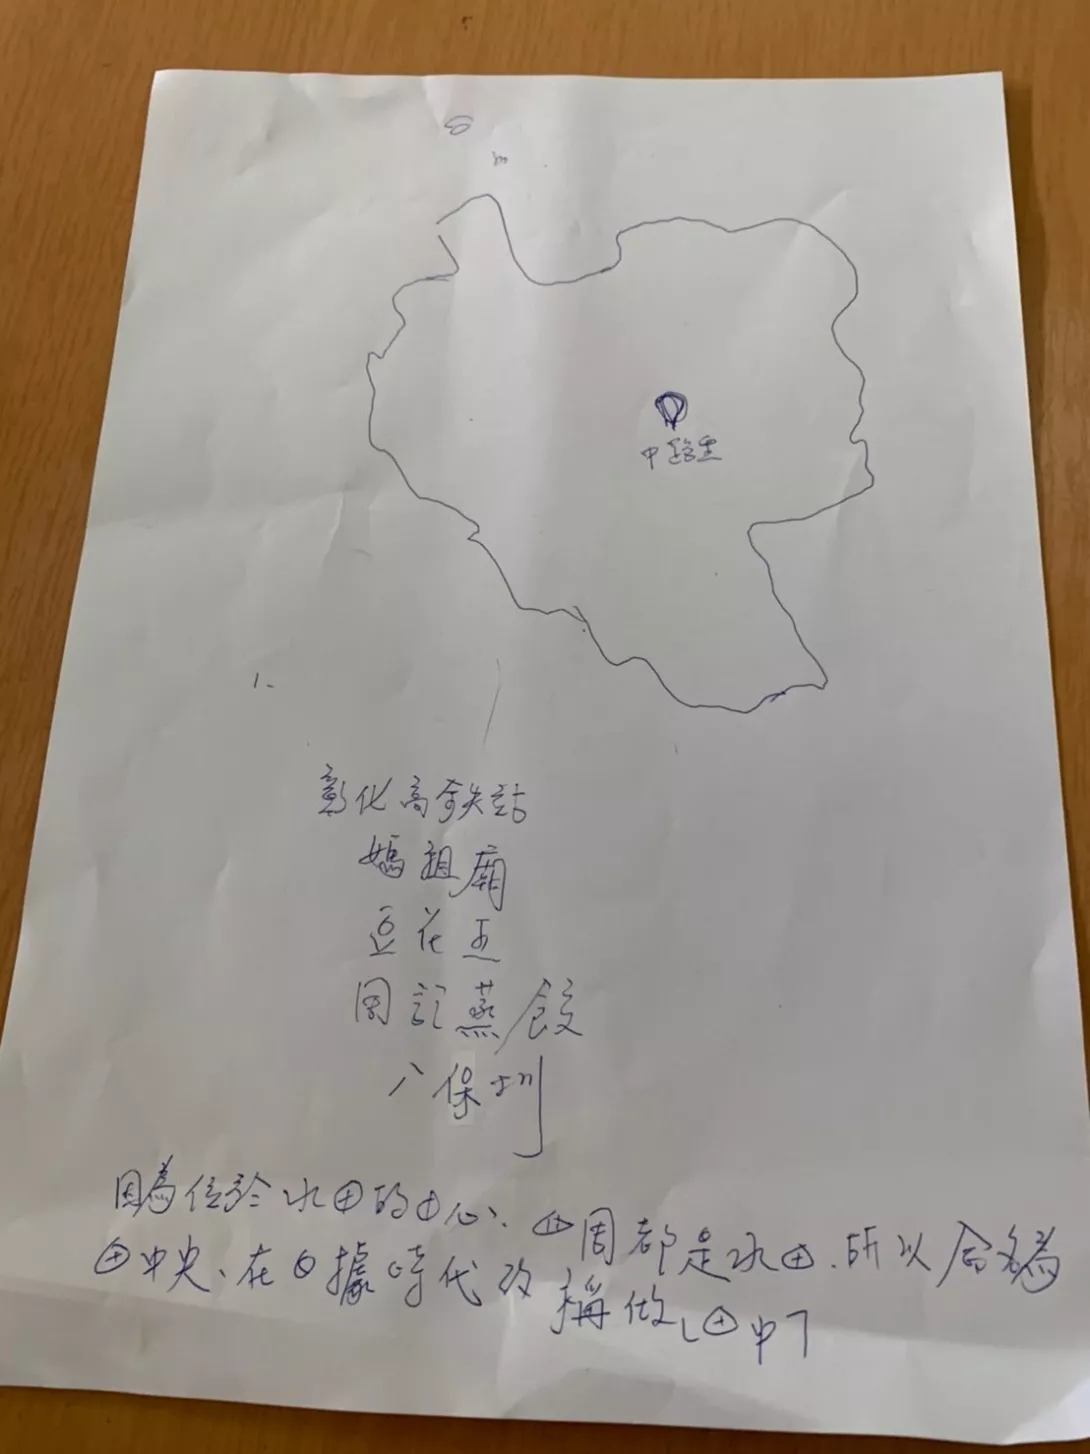 中路里
1.
彰化高鉄站
媽祖廟
豆花王
周記蒸餃
八保圳
因為位於水田的中心、四周都是水田.所以命名為
田中央、在日據時代改稱做「田中」